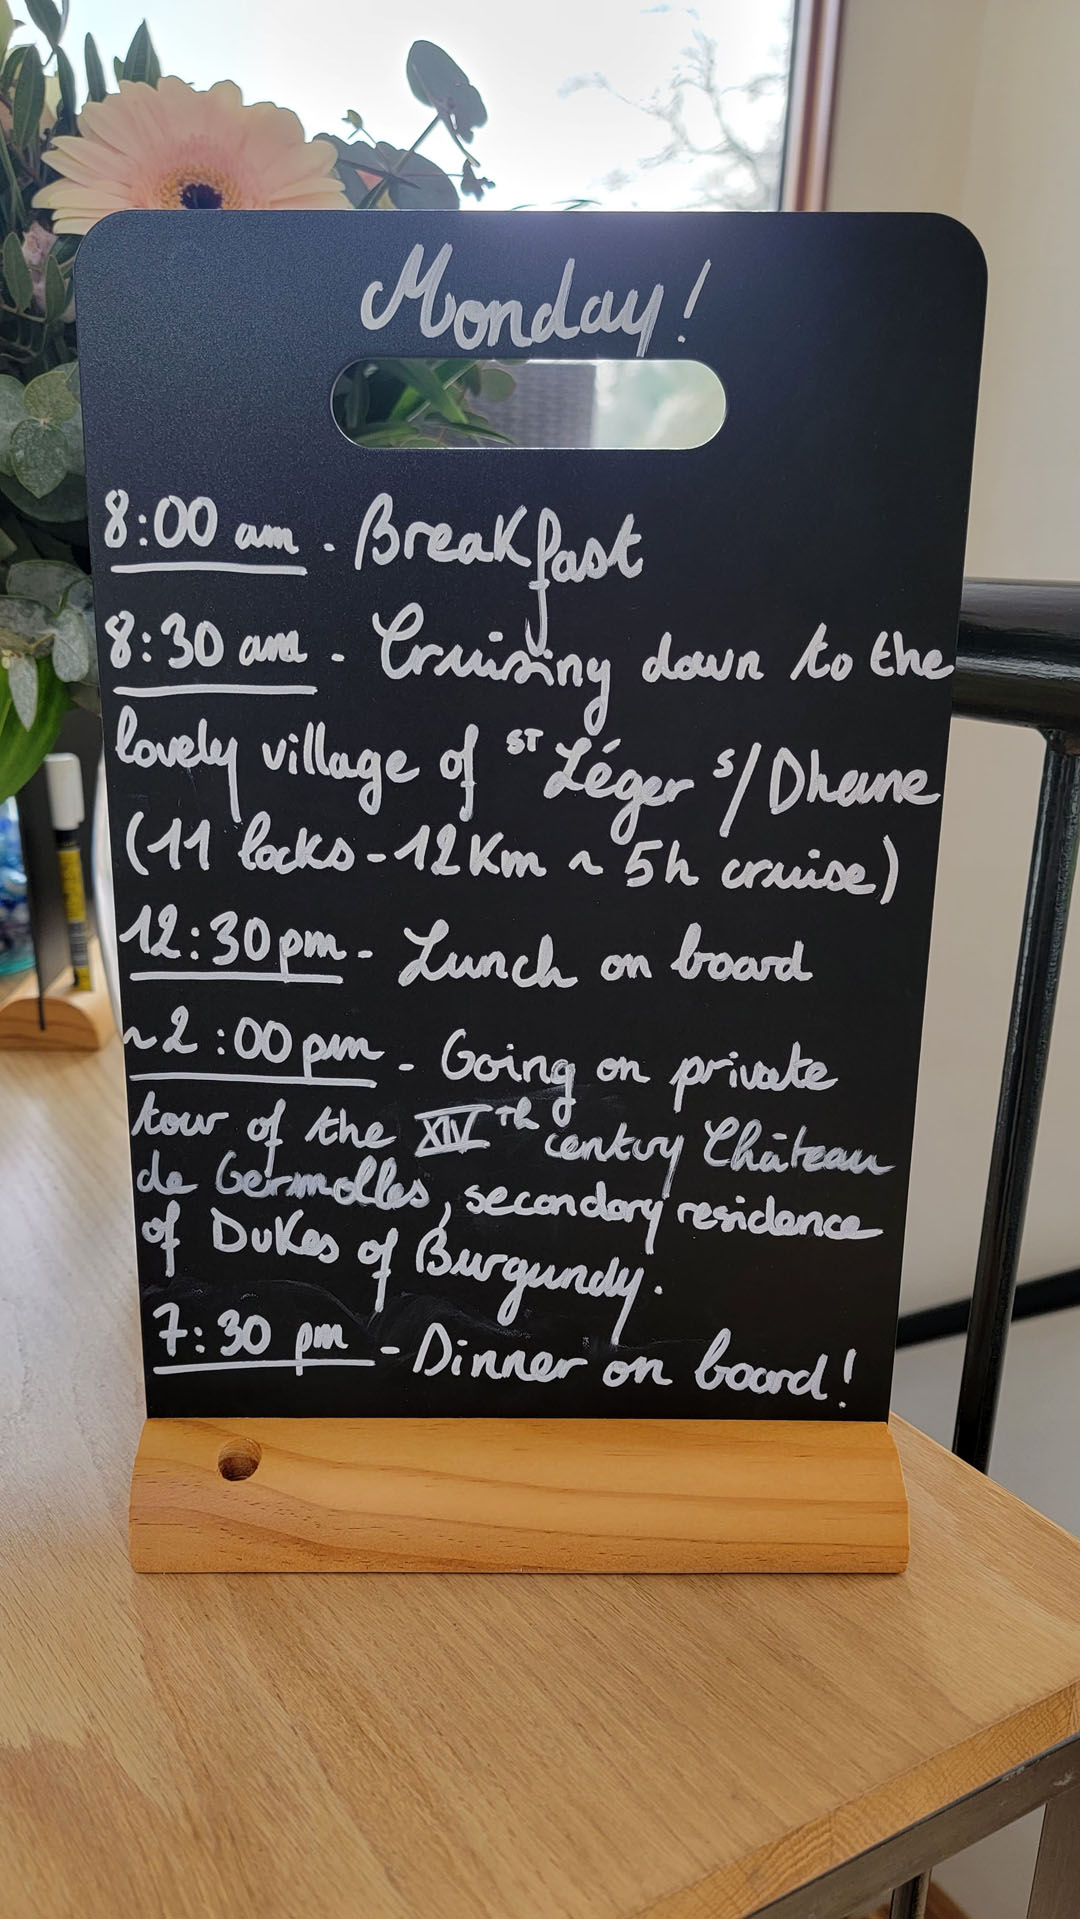 Monday!
8:00 am. Breakfast
8:30 am. Cruising down to the
lovely village of ST Léger s/Dheune
(11 locks - 12Km ~ 5h cruise)
12:30pm - Lunch on board
~2:00pm - Going on private
tour of the XIVth century Château
de Germolles, secondary residence
of Dukes of Burgundy.
7:30 pm - Dinner on board!